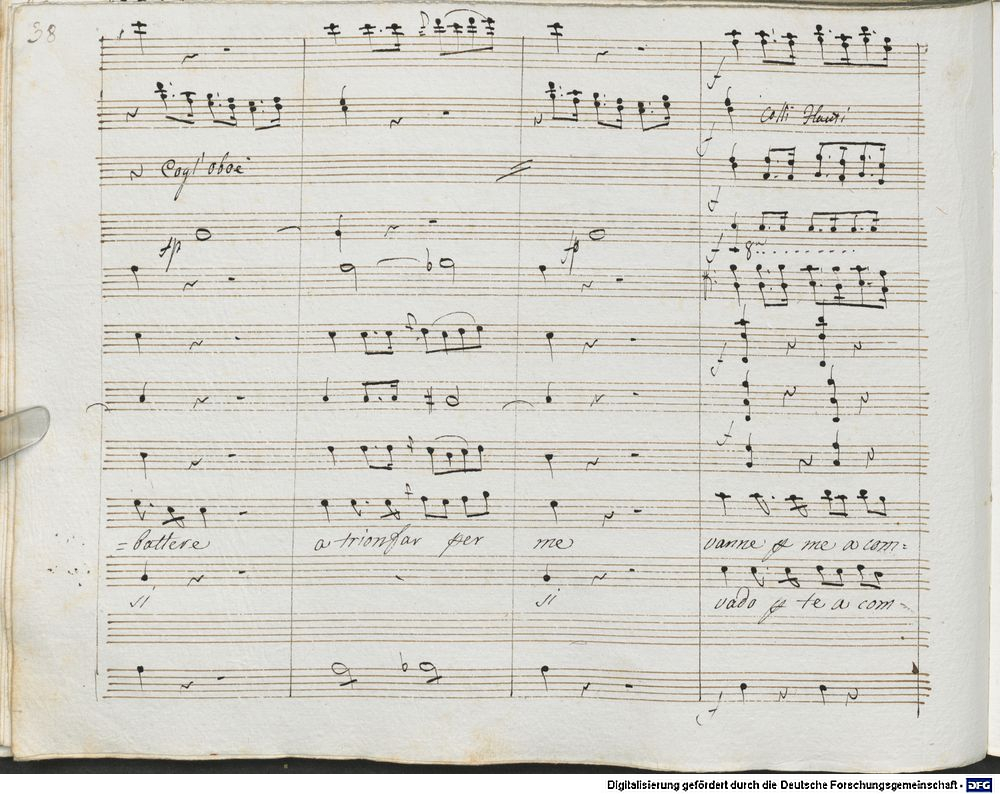 38
f
Colli Flauti
f
Cogl' oboè
f
fp
fp
f
8va
f
f
= battere a trionfar per me vanne p me a com=
si si vado p te a com-
f
Digitalisierung gefördert durch die Deutsche Forschungsgemeinschaft - DFG